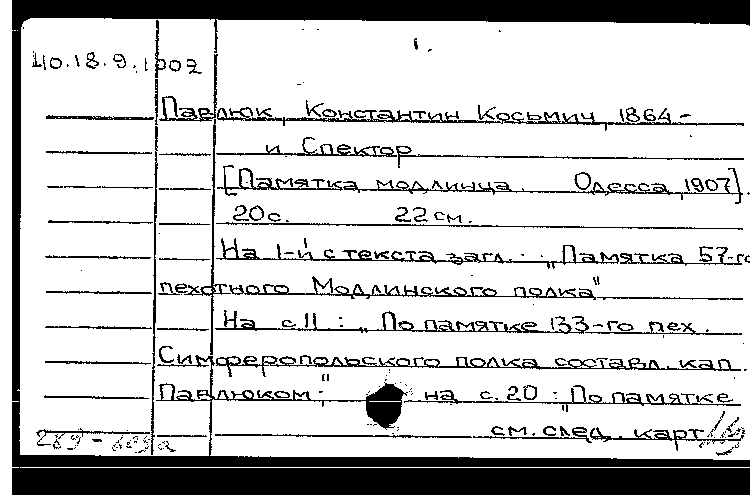 1.
40.18.9.1002
Павлюк, Константин Косьмич, 1864-
и Спектор
[Памятка модлинца. Одесса, 1907].
20с. 22см.
На 1-й с текста загл.: „Памятка 57-го
пехотного Модлинского полка"
На с.11: „По памятке 133-го пех.
Симферопольского полка составл. кап.
Павлюком;" на с.20: „По памятке
см. след. карт